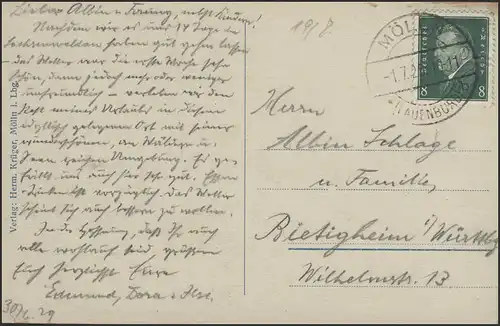 Lieber Albin u. Fanny, nebst Kinder!
Nachdem wir es uns 14 Tage in
haben gut gehen lassen
- das Wetter war die erste Woche sehr
schön, dann jedoch mehr oder weniger
unfreundlich - verleben wir den
Rest meines Urlaubs in diesem
idyllisch gelegenen Ort mit seiner
wunderschönen, an Wäldern u.
Seen reichen Umgebung. Es ge-
fällt uns auch hier sehr gut. Essen
u. Trinken ist vorzüglich. Das Wetter
scheint sich auch bessern zu wollen.
In der Hoffnung, daß Ihr auch
alle wohlauf seid grüßen
Euch herzlichst Eure
Edmund, Dora u. Ilse
30/6. 29
Verlag: Herm. Krüger, Mölln i. Lbg.
19/7
MÖLLN
1.7.2
LAUENBURG
Deutsches Reich
8 8
Herrn
Albin Schlage
u. Familie,
Bietigheim i/Württbg
Wilhelmstr. 13